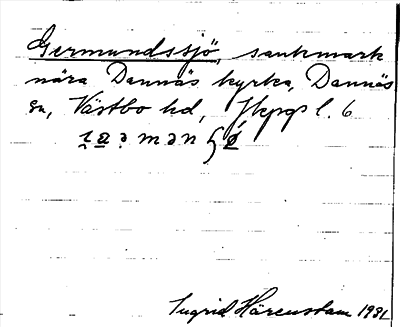 Germundssjö, sankmark
nära Dannäs kyrka, Dannäs
sn, Västbo hd, Jkpgs l. 6
Ingrid Härenstam 1931